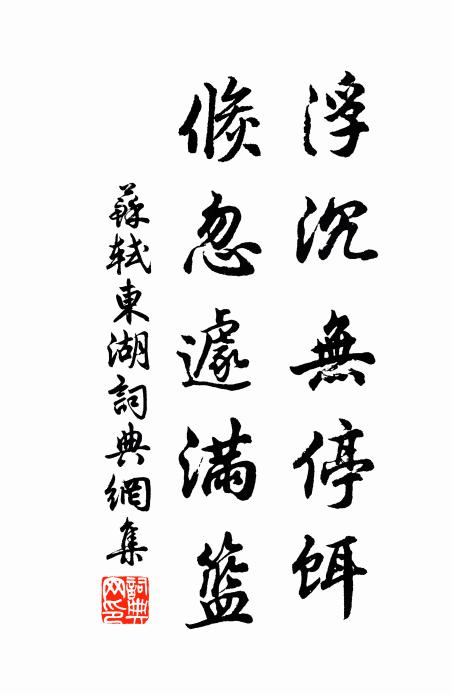 浮沉無停餌
倐忽遽滿籃
蘇軾東湖詞典網集
詞典网印